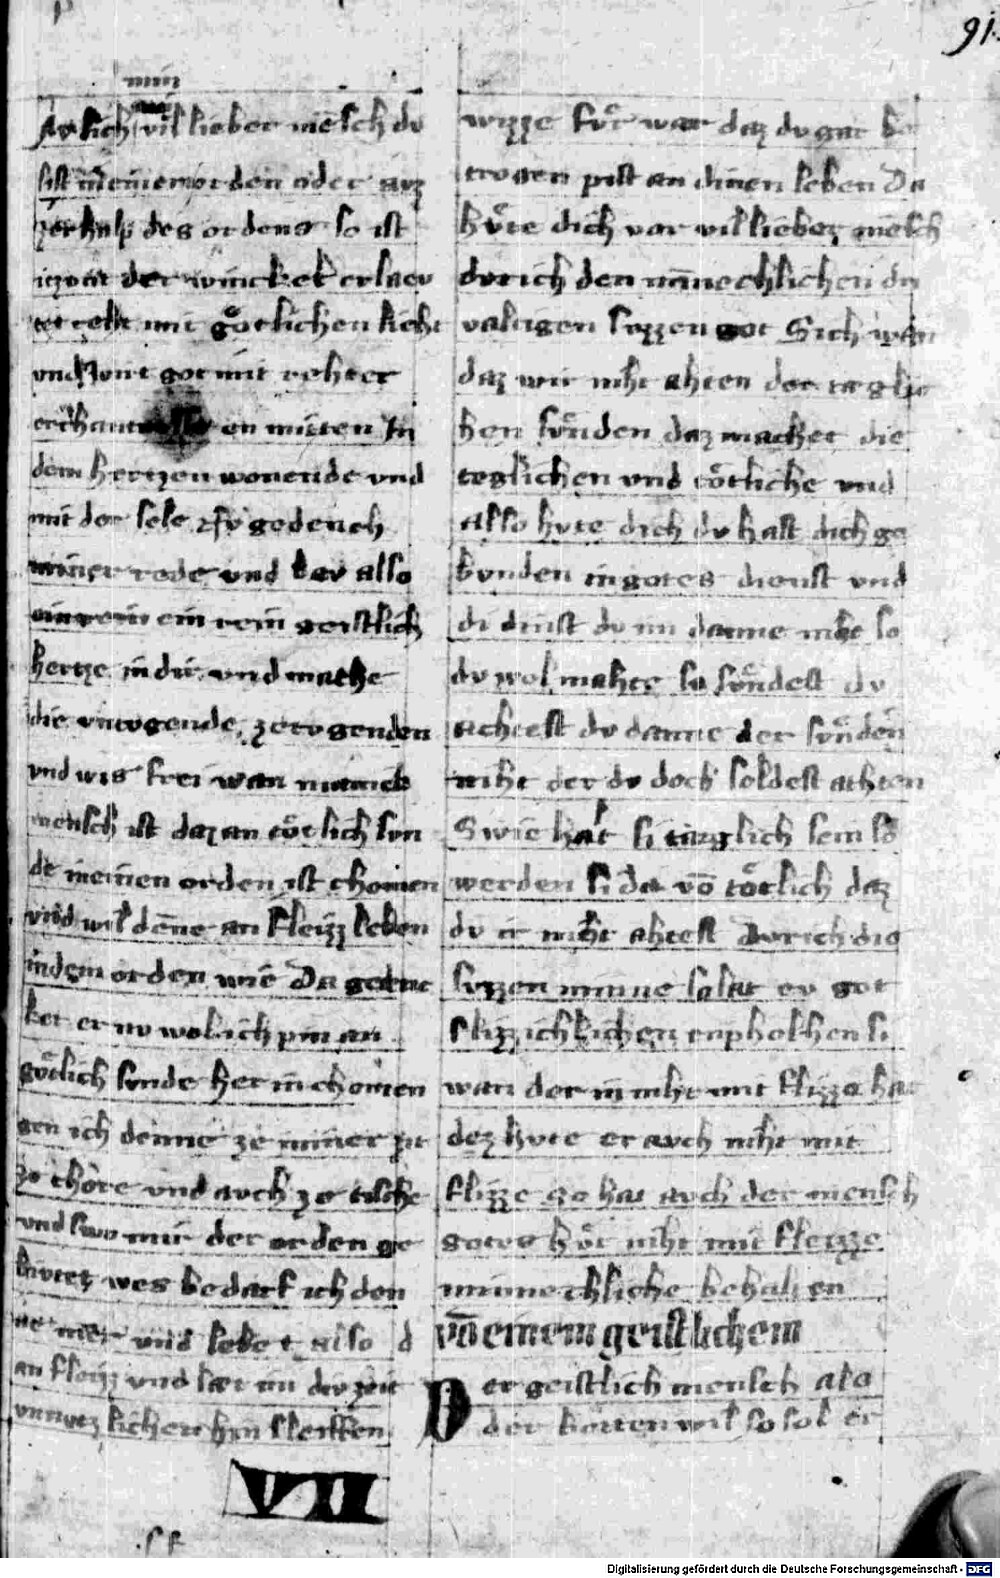 91.
min
Nv sich vil lieber mēsch dv
sist in einem orden oder avz
des ordens so ist
der winckel erlaev
tet reht mit gͦtlichen lieht
vnd got mit rehter
en mitten in
dem hertzen wonende vnd
mit der sele gedench
miner rede vnd bav also
ein rein geistlich
hertze in dir vnd mache
die vntvgende ze tvgenden
vnd wis frei wan manick
mensch ist daz an tͦtlich svn
de in einen orden ist chomen
vnd wil dēne an fleizz leben
in dem orden wie Da geden
ket er nv wol ich pin an
tͦtlich svnde her in chomen
gen ich denne ze miner zit
ze chore vnd avch ze tische
vnd swo mir der orden ge
bivtet wes bedarf ich den
ne mer vnd lebet also d
an fleizz vnd laet im div zeit
vnnvtzlichen hin sleiffen
VII
wizze fvͤr war daz dv gar be
trogen pist an dinem leben Da
hvͤte dich vor vil lieber mēsch
dvrich den minnechlichen ein
valtigen svzzen got Sich wan
daz wir niht ahten der taegli
chen svͤnden daz machet die
teglichen vnd tͦtliche vnd
also hvte dich dv hast dich ge
bvnden in gotes dienst vnd
di dinst dv im danne niht so
dv wol mahte so svͤndest dv
achtest dv danne der svͤnden
niht der dv doch soldest achten
Swie halt si taeglich sein so
werden si da vō tͦtlich daz
dv ir niht ahtest Dvrich die
svzzen minne solat ev got
flizzichlichen enpholhen si
wan der in niht mit flizze hat
dez hvte er avch niht mit
flizze So hat avch der mensch
gotes hvͤt niht mit fleizze
minnechliche behalten
vō einem geistlichem
Der geistlich mensch als
der horten wil so sol er
Digitalisierung gefördert durch die Deutsche Forschungsgemeinschaft - DFG